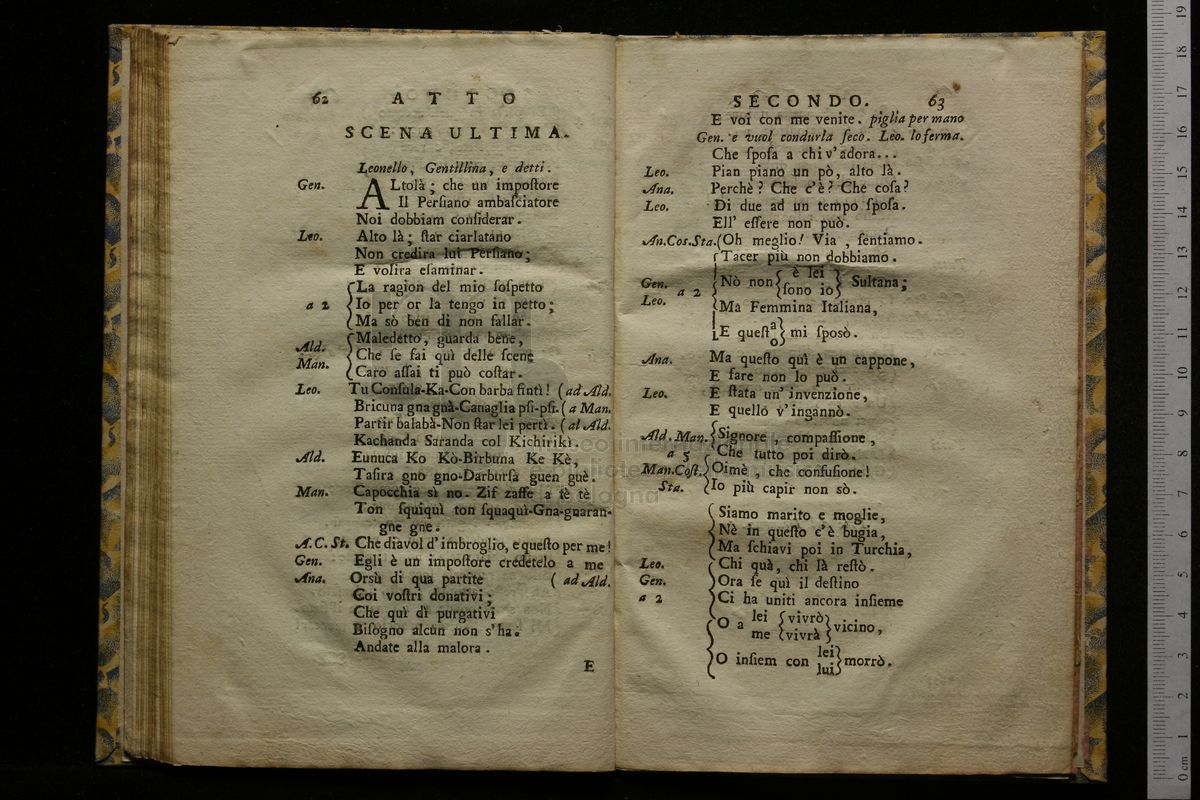 62 ATTO
SCENA ULTIMA.
Leonello, Gentillina, e detti.
Gen. ALtolà; che un impoſtore
Il Perſiano ambaſciatore
Noi dobbiam conſiderar.
Leo. Alto là; ſtar ciarlatano
Non credira lui Perſiano;
E volira eſaminar.
La ragion del mio ſoſpetto
a 2 Io per or la tengo in petto;
Ma sò ben di non fallar.
Ald. Maledetto, guarda bene,
Man. Che ſe fai quì delle ſcene
Caro aſſai ti può coſtar.
Leo. Tu Conſula-Ka-Con barba fintì! (ad Ald.
Bricuna gna gnà-Canaglia pſi-pſi. (a Man.
Partir balabà-Non ſtar lei pertì. (al Ald.
Kachanda Saranda col Kichirikì.
Ald. Eunuca Ko Kò-Birbuna Ke Kè,
Taſira gno gno-Darburſa guen guè.
Man. Capocchia sì no. Zif zaffe a tè tè
Ton ſquiquì ton ſquaquì-Gna-gnaran-
gne gne.
A. C. St. Che diavol d'imbroglio, e queſto per me!
Gen. Egli è un impoſtore credetelo a me
Ana. Orsù di qua partite (ad Ald.
Coi voſtri donativi;
Che quì dì purgativi
Biſogno alcun non s'ha.
Andate alla malora.
E
SECONDO. 63
E voi con me venite. piglia per mano
Gen. e vuol condurla ſeco. Leo. lo ferma.
Che ſpoſa a chi v'adora...
Leo. Pian piano un pò, alto là.
Ana. Perchè? Che c'è? Che coſa?
Leo. Di due ad un tempo ſpoſa.
Ell' eſſere non può.
An.Cos.Sta. (Oh meglio! Via, ſentiamo.
Tacer più non dobbiamo.
Gen. Leo. a 2 Nò non è lei Sultana;
ſono io
Ma Femmina Italiana,
E queſta mi ſposò.
o
Ana. Ma queſto quì è un cappone,
E fare non lo può.
Leo. E ſtata un' invenzione,
E quello v'ingannò.
Ald. Man. Signore, compaſſione,
a 5 Che tutto poi dirò.
Man.Coſt. Oimè, che confuſione!
Sta. Io più capir non sò.
Siamo marito e moglie,
Nè in queſto c'è bugia,
Ma ſchiavi poi in Turchia,
Leo. Chi quà, chi là reſtò.
Gen. Ora ſe quì il deſtino
a 2 Ci ha uniti ancora inſieme
O a lei vivrò vicino,
me vivrà
O inſiem con lei morrò.
lui